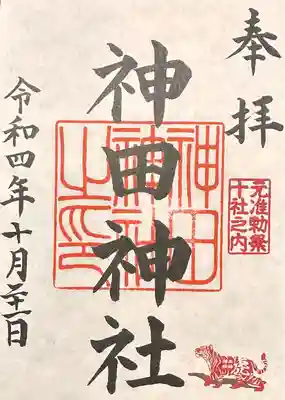 奉拝
元准勅祭
十社之内
神田神社
神田
神社
之印
令和四年十月二十一日